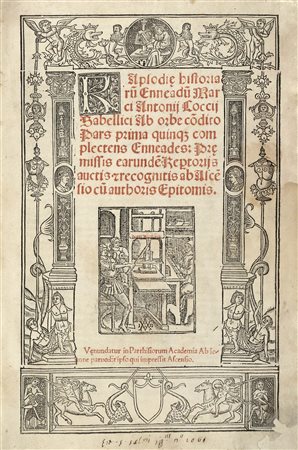 Raplodię historia
rũ Enneadũ Mar
ci Antonij Coccij
Sabellici Ab orbe cõdito
Pars prima quinqȝ com
plectens Enneades: Prę
missis earundẽ Reptorijs
auctis ⁊ recognitis ab Ascẽ
sio cũ authoris Epitomis.
Venundatur in Parrhisiorum Academia Ab Io
anne paruo & ipso qui impressit Ascensio.